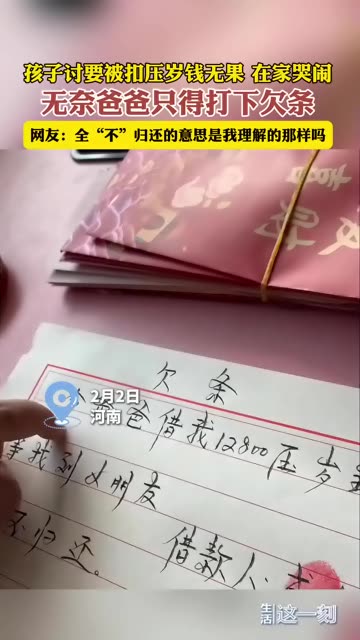 孩子讨要被扣压岁钱无果 在家哭闹
无奈爸爸只得打下欠条
网友：全“不”归还的意思是我理解的那样吗
欠条
2月2日
河南
爸爸借我12800压岁
等我到女朋友
不归还。 借款人：
生活 这一刻